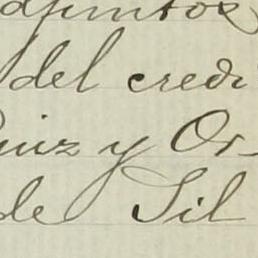 adjuntos
del credi
Ruiz y Or-
de Sil